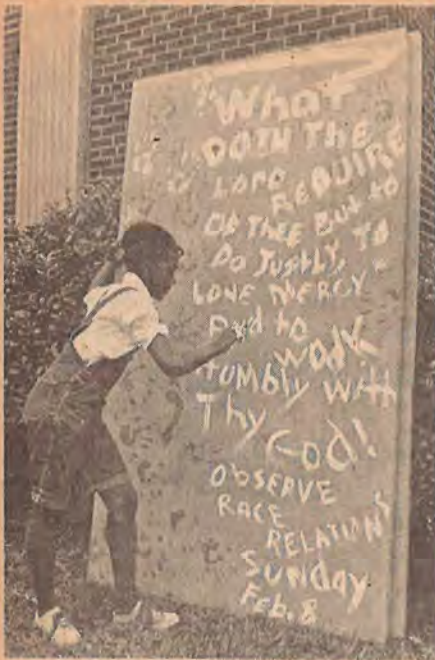 "What
DOTH THE
LORD
REQUIRE
OF THEE BUT TO
DO JUSTLY, TO
LOVE MERCY
And to
WALK
HUMBLY WITH
Thy
God!
OBSERVE
RACE
RELATIONS
SUNday
Feb. 8